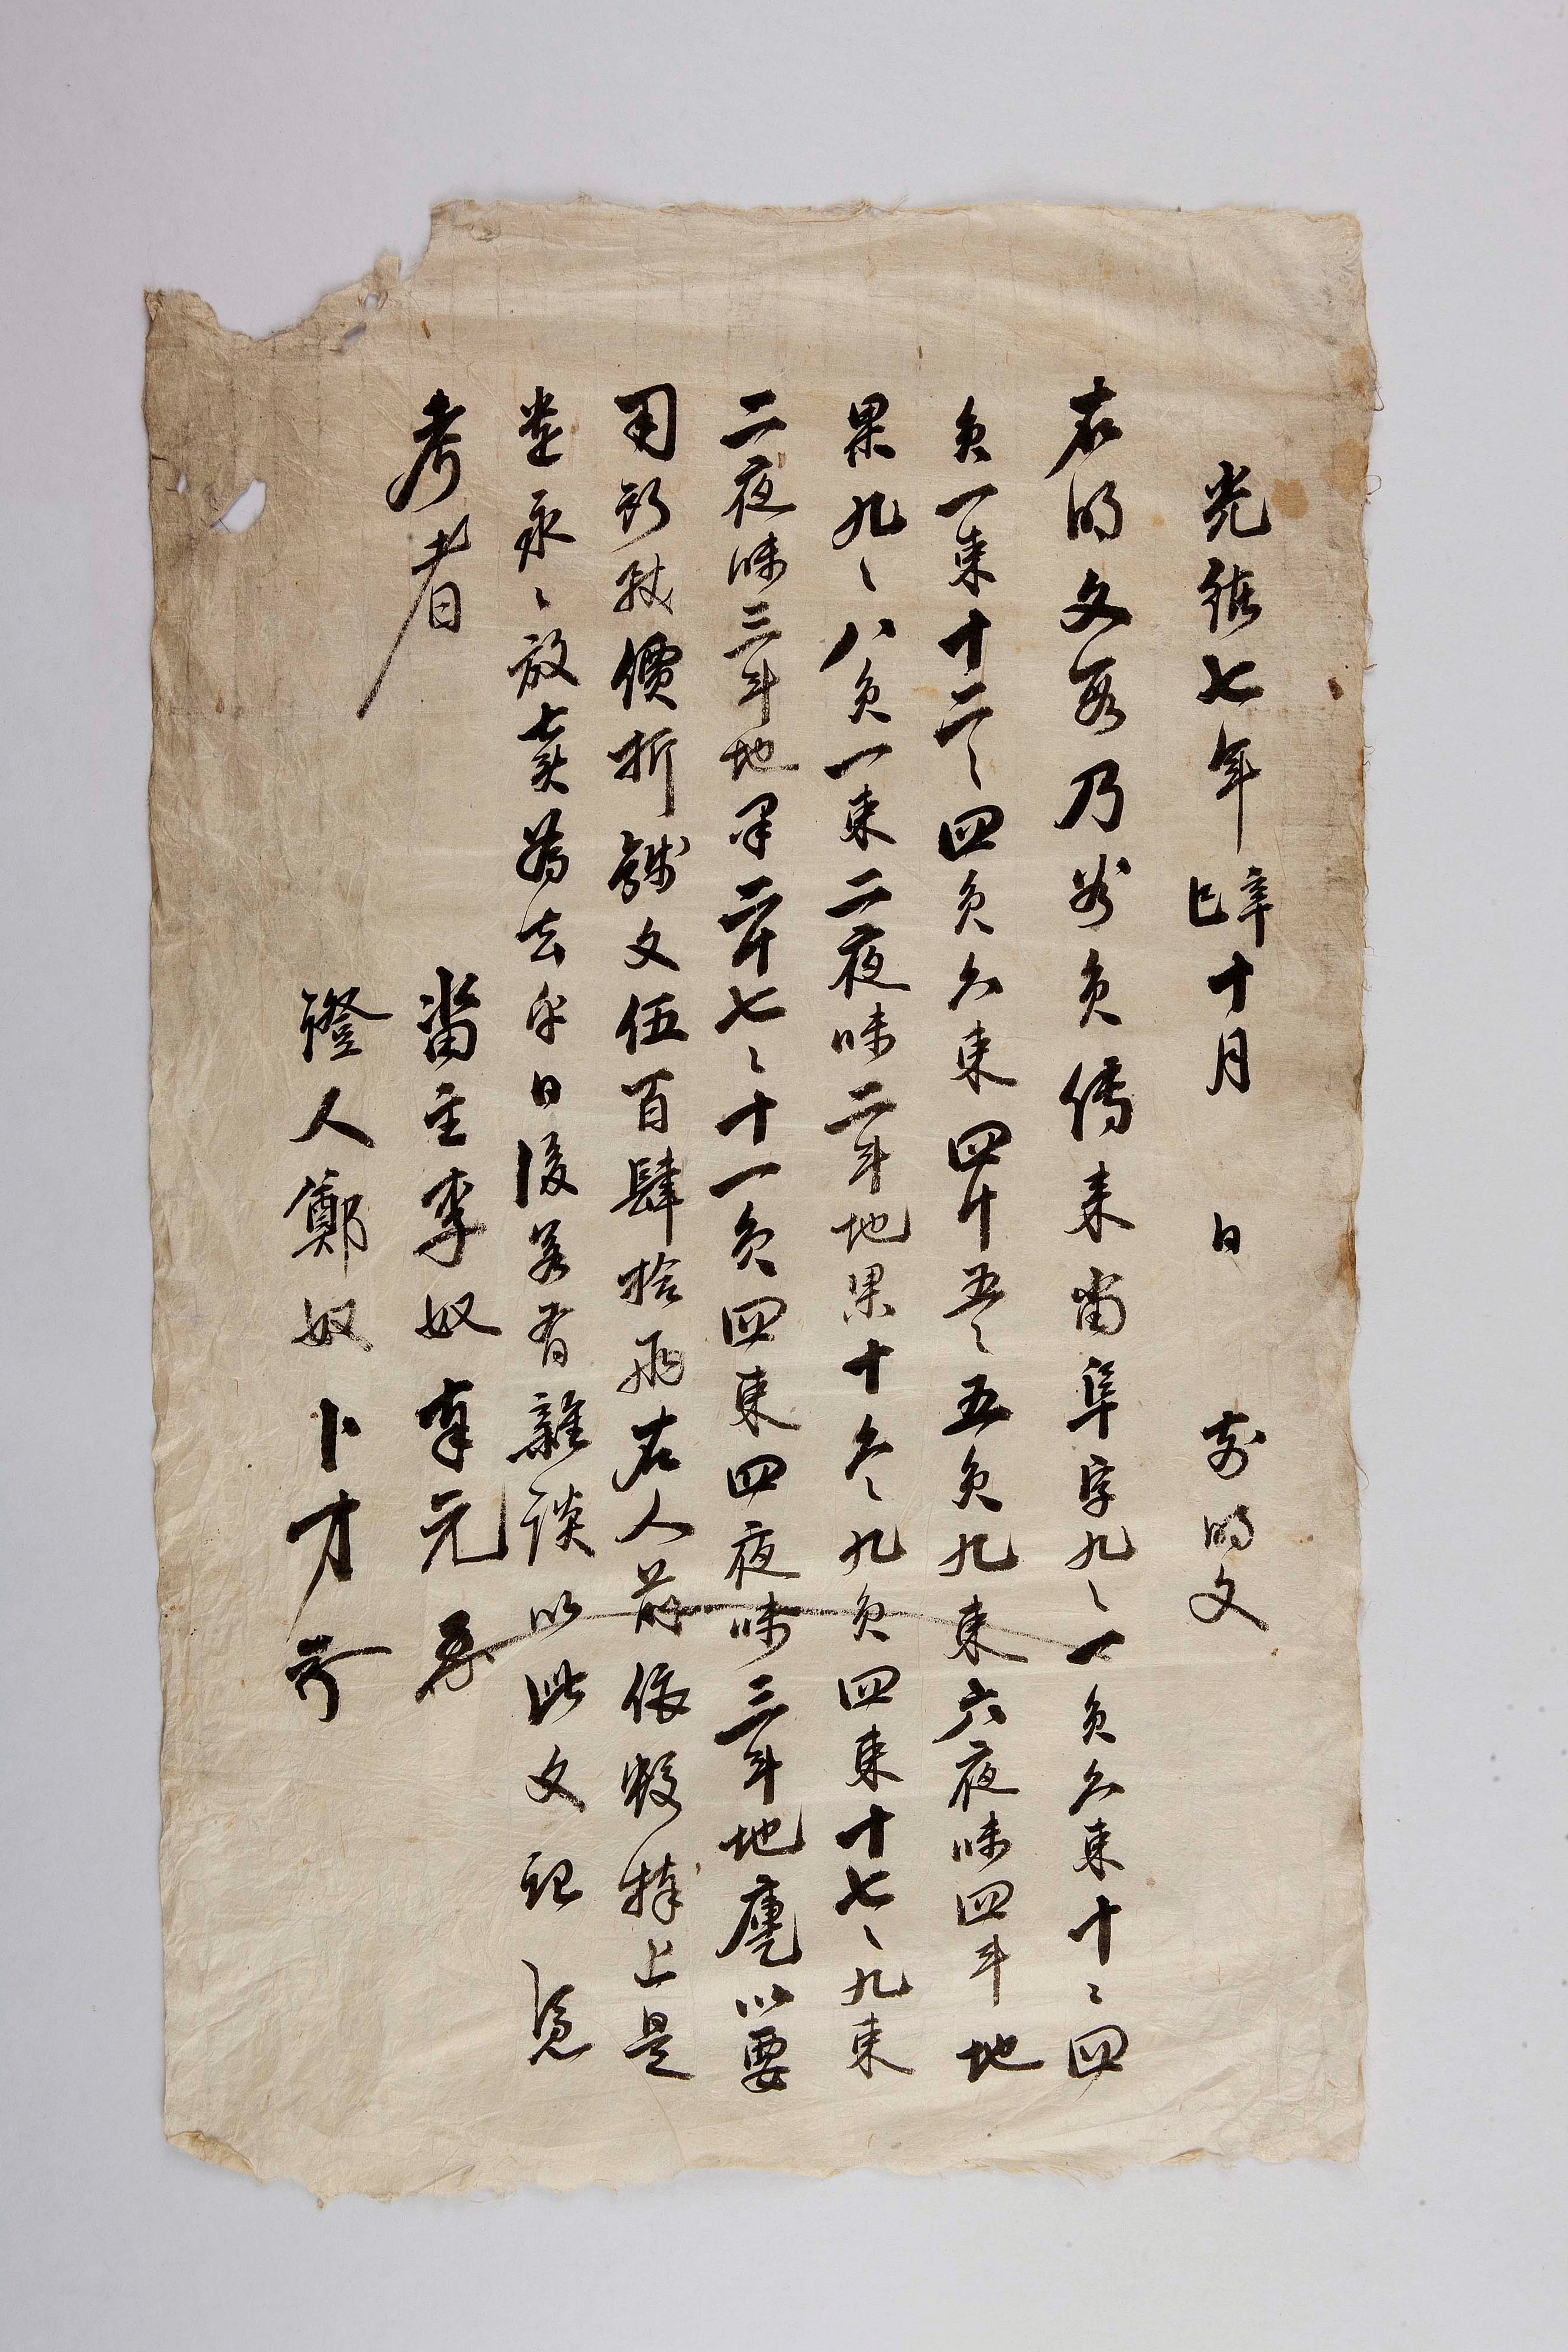 光緖七年辛巳十月 日 前明文
右明文段乃 負 傳來畓阜字九〻一負六束十〻四
負一束十二〻四負六束四十五〻五負九束六夜味四斗地
果九〻八負一束二夜味二斗地果十六〻九負四束十七〻九束
二夜味三斗地果二十七〻十一負四束四夜味三斗地庫以要
用所致價折錢文伍百肆拾兩右人前依數捧上是
遣永〻放賣爲去乎日後若有雜談以此文記憑
考者
畓主李奴 元
證人鄭奴卜才